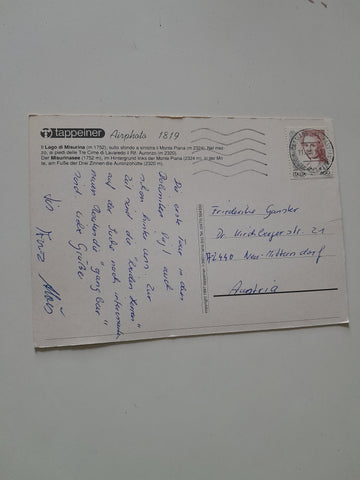 tappeiner Airphoto 1819
Il Lago di Misurina (m. 1752), sullo sfondo a sinistra il Monte Piana (m 2324). Nel mez-
zo, ai piedi delle Tre Cime di Lavaredo il Rif. Auronzo (m 2320).
Der Misurinasee (1752 m), im Hintergrund links der Monte Piana (2324 m), in der Mit-
te, am Fuße der Drei Zinnen die Auronzohütte (2320 m).
Die erste Tour in den
Dolomiten liegt auch
schon hinter uns. Zur
Zeit sind die "beiden Herren"
auf der Suche nach interessanten
neuen Routen die "gangbar"
sind. Liebe Grüße
ITALIA
Friederike Gansler
Dr. Kirchbergerstr. 21
A2490 Neu-Mitterndorf
Austria